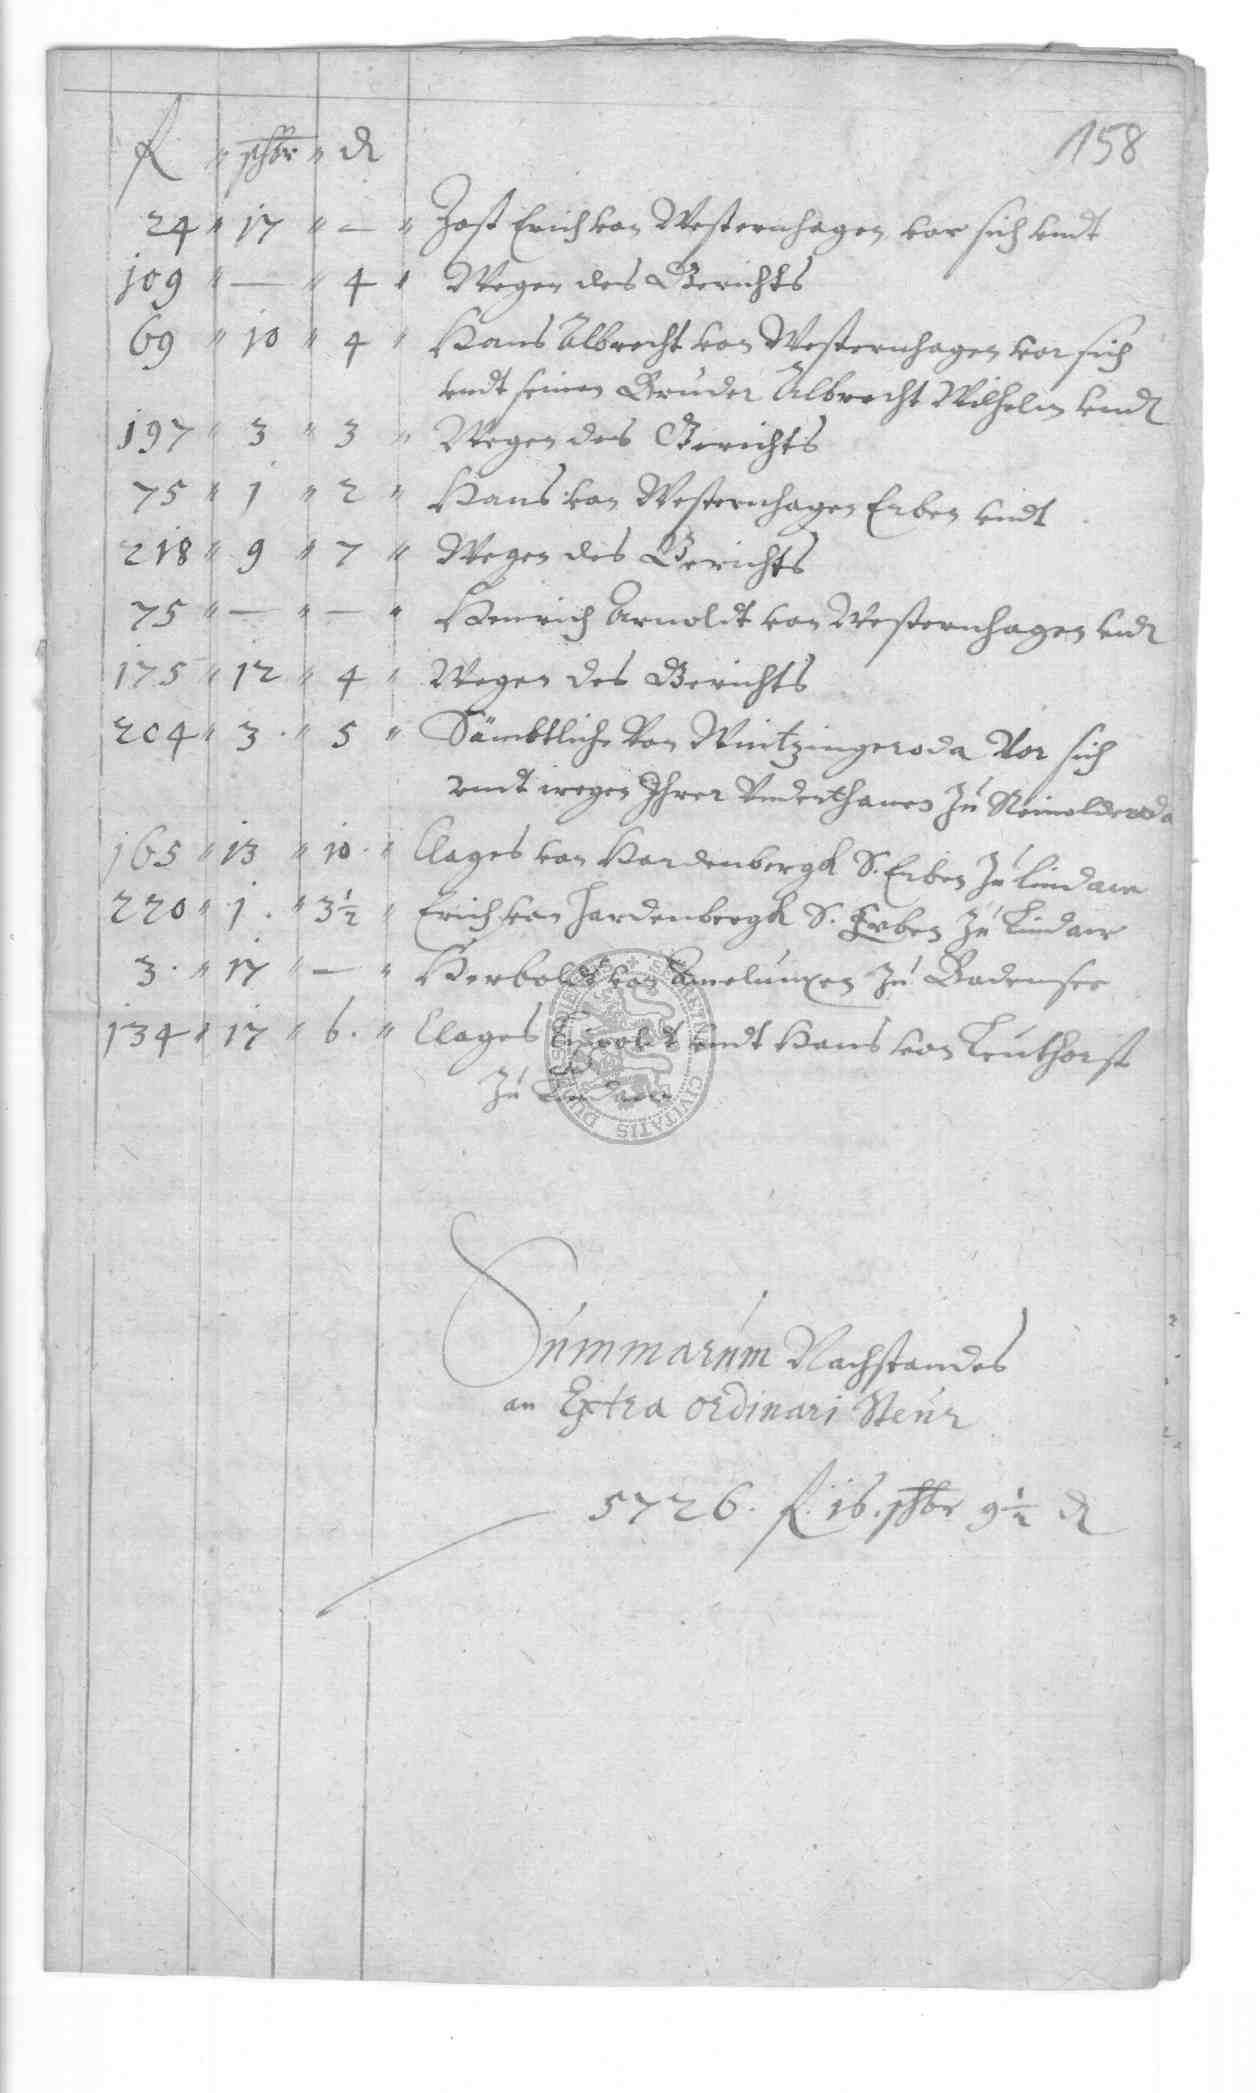 158
fl " schbr " d
24 " 17 " — " Jost Erich von Westernhagen vor sich vndt
109 " — " 4 " Wegen des Gerichts
69 " 10 " 4 " Hans Albrecht von Westernhagen vor sich
vndt seinen Bruder Albrecht Wilhelm vnd
197 " 3 " 3 " Wegen des Gerichts
75 " 1 " 2 " Hans von Westernhagen Erben vndt
218 " 9 " 7 " Wegen des Gerichts
75 " — " — " Henrich Arnoldt von Westernhagen vnd
175 " 12 " 4 " Wegen des Gerichts
204 " 3 " 5 " Sämbtliche Von Wintzingeroda Vor sich
vndt wegen Ihrer Vnderthanen Zu
165 " 13 " 10 " Clages von Hardenbergk S. Erben Zu Lindaw
220 " 1 " 3½ " Erich von Hardenbergk S. Erben Zu Lindaw
3 " 17 " — " Herboldt von Amelunxen Zu Badensee
134 " 17 " 6 " Clages vndt Hans von Leuthorst
Zu Lindaw
CIVITATIS
Summarum Nachstandes
an Extra ordinari Steur
5726. fl. 16. schbr 9½ d